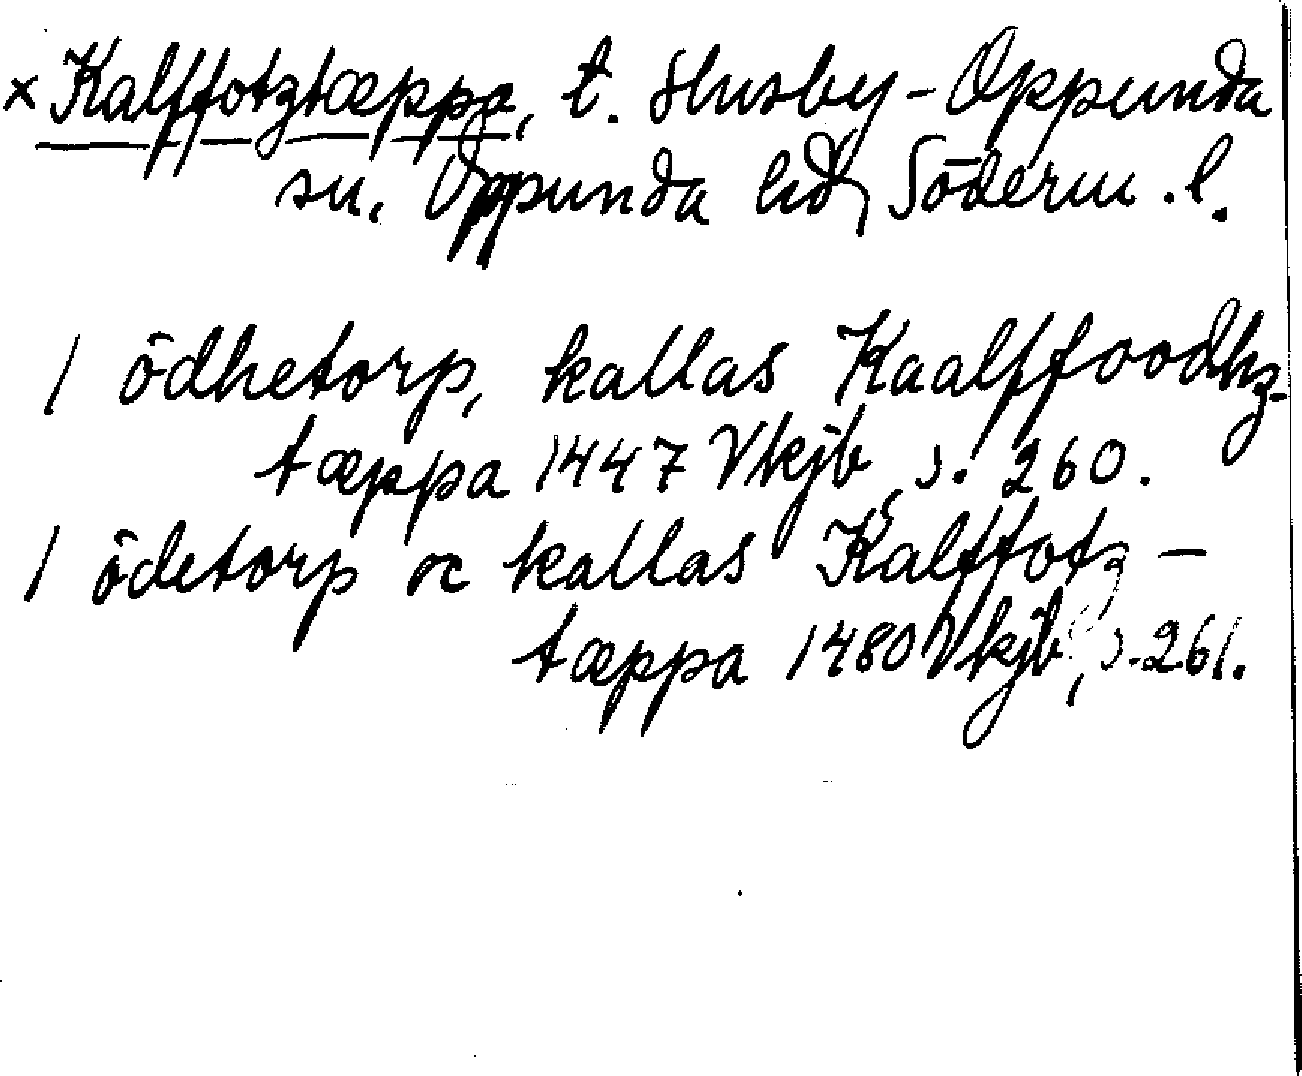 × Kalffotztæppa, t. Husby-Oppunda
sn, Oppunda hd, Söderm. l.
1 ödhetorp, kallas Kaalffoodhz-
tæppa 1447 Vkjb, s. 260.
1 ödetorp oc kallas Kalffotz-
tæppa 1480 Vkjb, s. 261.